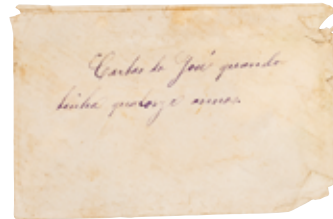 Cartas do José quando
tinha quatorze annos.